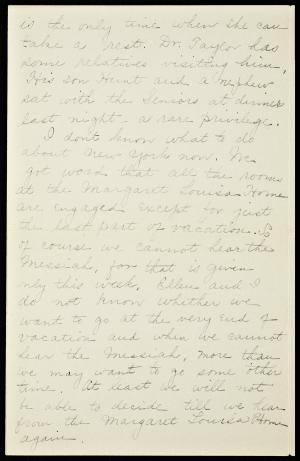 is the only time when she can
take a rest. Dr. Taylor has
some relatives visiting him,
His son Hunt and a nephew
sat with the Seniors at dinner
last night - a rare privilege.
I don't know what to do
about New York now. We
got word that all the rooms
at the Margaret Louisa Home
are engaged except for just
the last part of vacation. So
of course we cannot hear the
Messiah, for that is given
only this week. Ellen and I
do not know whether we
want to go at the very end of
vacation and when we cannot
hear the Messiah, more than
we may want to go some other
time. At least we will not
be able to decide till we hear
from the Margaret Louisa Home
again.